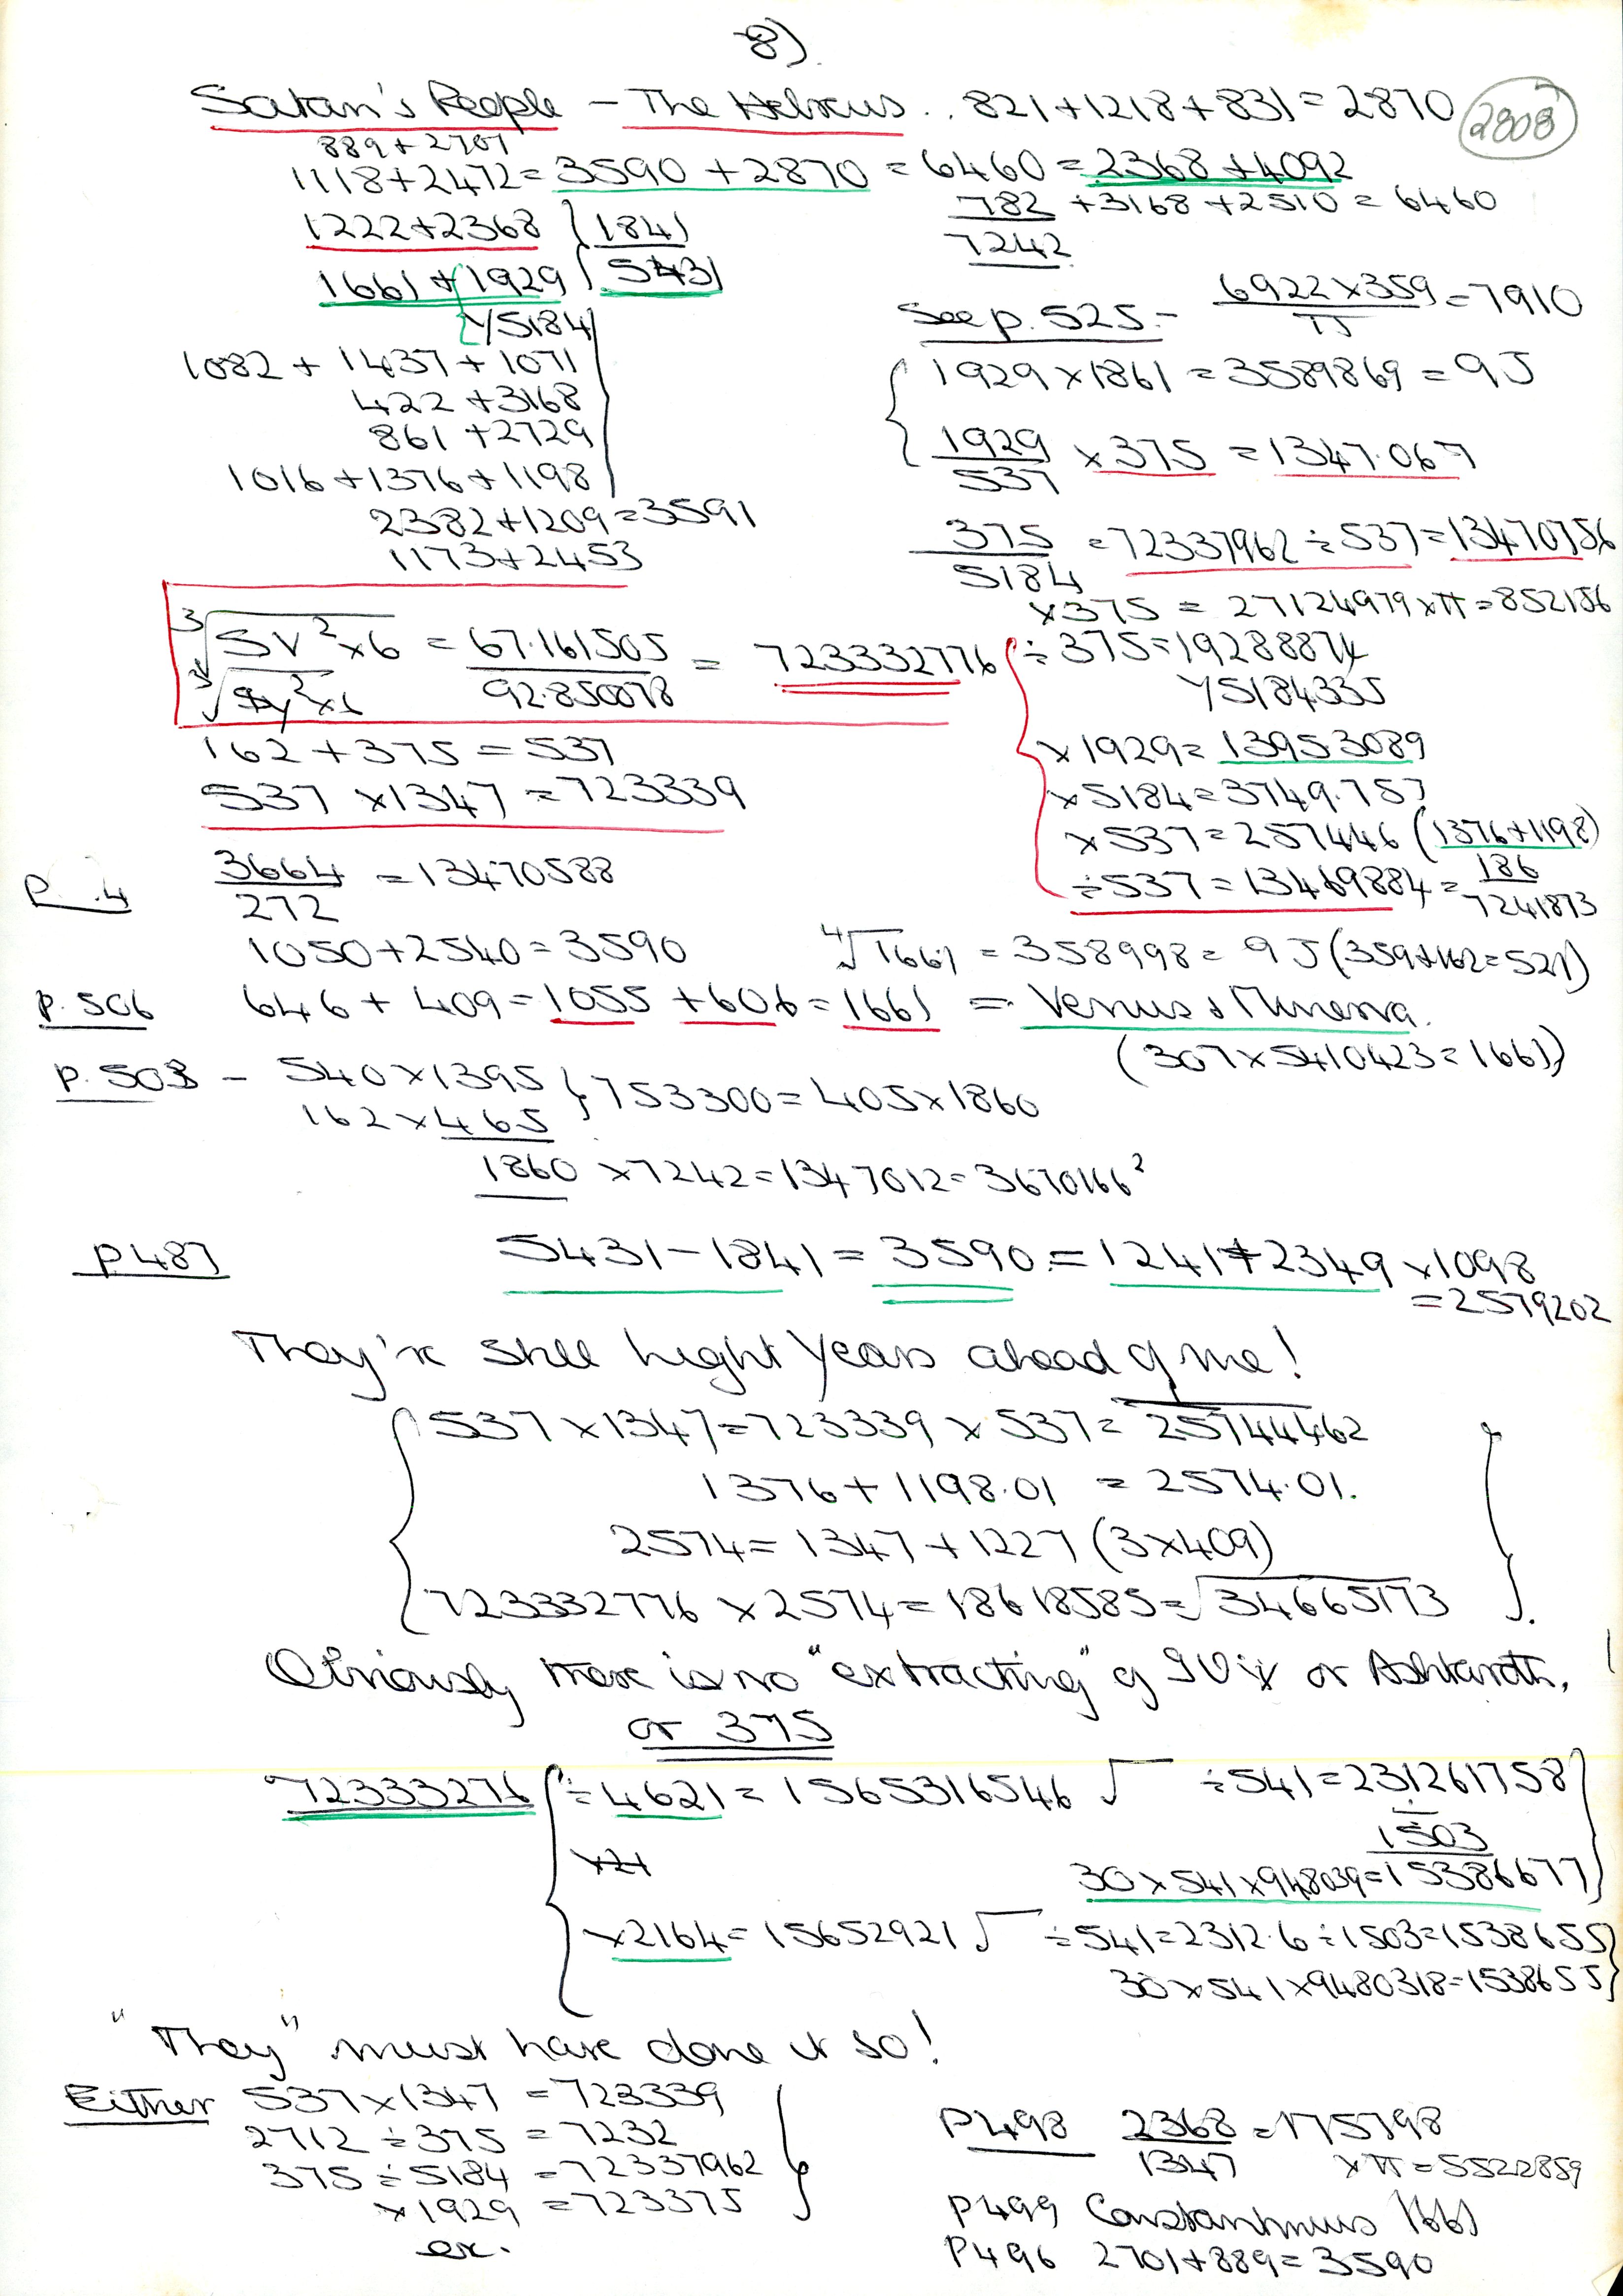 8)
Satan's People – The Hebrews .. 821+1218+831=2870
2808
889+2701
1118+2472=3590+2870=6460=2368+4092
782+3168+2510=6460
7242
1222+2368 } 1841
1661+1929 } 5431
√5184
1082+1437+1071
422+3168
861+2729
1016+1376+1198
2382+1209=3591
1173+2453
See p. 525.- 6922×359=7910
π
1929×1861=3589869=9J
1929 ×375=1347.067
537
375 =72337962÷537=13470756
5184
×375=27124979×π=852156
3√SV²×6 = 67.161505 = 723332776
92.850078
÷375=19288874
√5184335
×1929=13953089
×5184=3749.757
×537=257446 (1376+1198)
÷537=13469884= 186
7241873
162+375=537
537×1347=723339
P .4 3664 =13470588
272
1050+2540=3590 4√1661=358998=9J(359+162=521)
p.506 646+409=1055+606=1661 = Venus & Minerva.
(307×5410423=1661)
p.503 – 540×1395 } 753300=405×1860
162×465
1860×7242=1347012=3670166²
p487 5431–1841=3590=1241+2349×1098
=2579202
They're still light years ahead of me!
537×1347=723339×537=25744462
1376+1198.01 = 2574.01.
2574=1347+1227 (3×409)
723332776×2574=18618585=√34665173
Obviously there is no "extracting" of or Ashtaroth,
or 375
72333276 ÷4621=1565316546 √ ÷541=231261758
÷
1503
×21
30×541×948039=15386677
×2164=15652921 √ ÷541=2312.6÷1503=1538655
30×541×9480318=1538655
"They" must have done it so!
Either 537×1347=723339
2712÷375=7232
375÷5184=72337962
×1929=723375
P498 2368 =175798
1347 ×π=5522859
P499 Constantinus 1661
P496 2701+889=3590